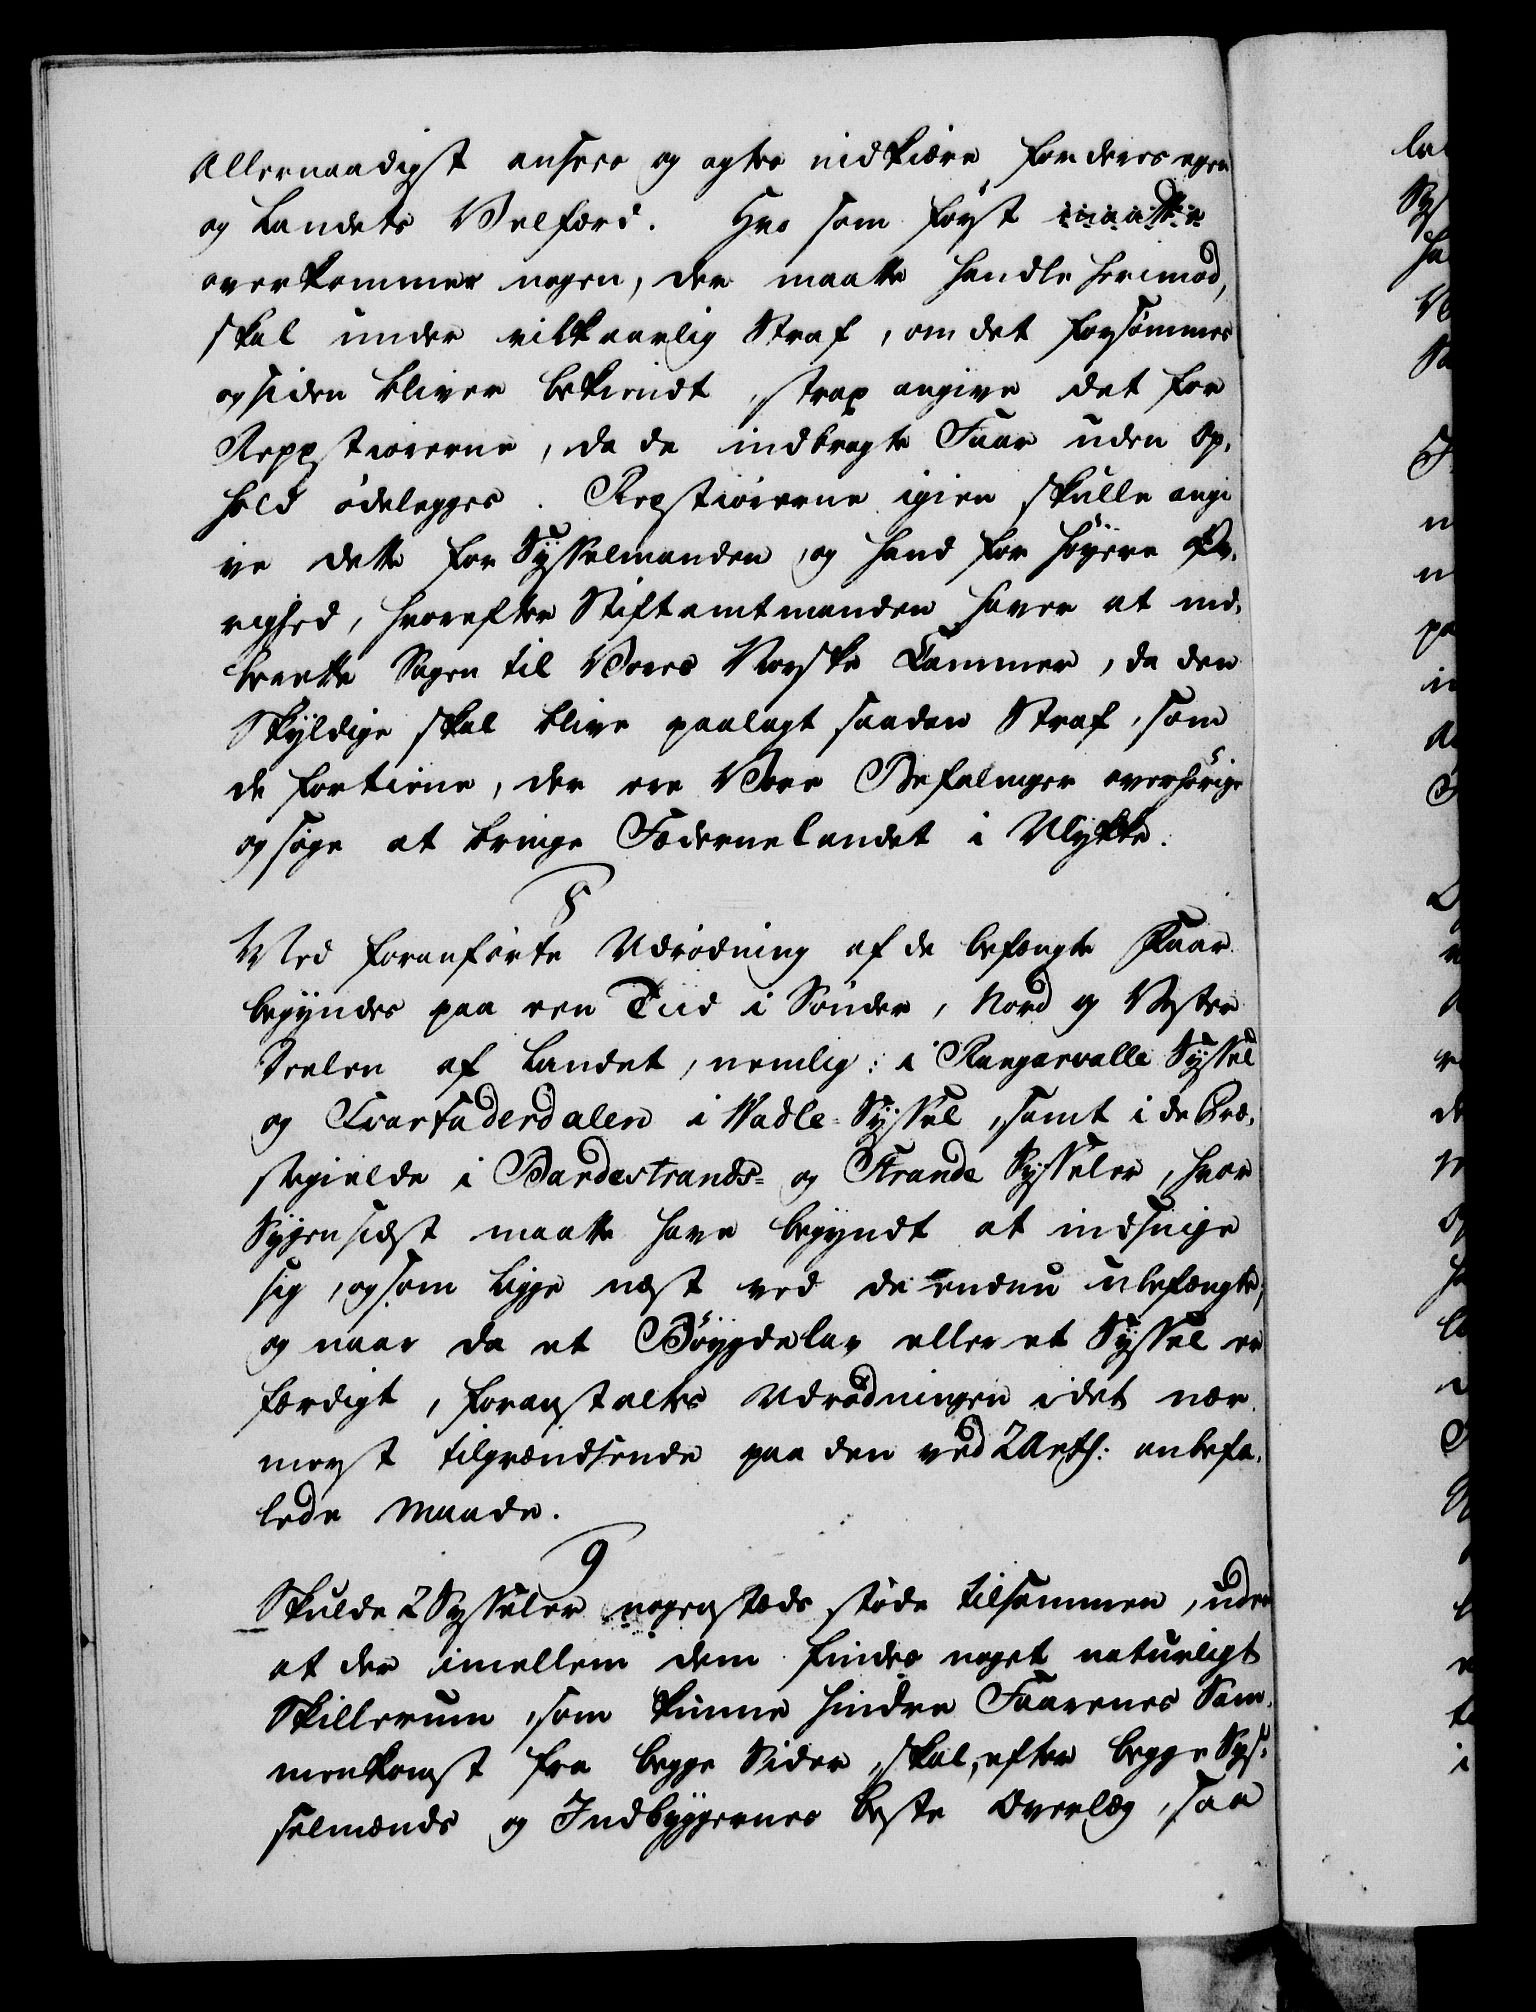 Allernaadigst ansees og agtes nidkiære for deres egen
og Landets Velfærd. Hvo som først maatte
overkommer nogen, der maatte handle herimod,
skal under vilkaarlig Straf, om det forsømmes
og siden bliver bekiendt, strax angive det for
Reppstiorerne, da de indbragte Faar uden Op-
hold ödelegges. Repstiörerne igien skulle angi
ve dette for Sÿsselmanden, og hand for höyere Øv-
righed, hvorefter Stiftamtmanden haver at ind-
berette Sagen til Vores Norske Cammer, da den
Skÿldige skal blive paalagt saadan Straf, som
de fortiene, der ere Vore Befalinger overhörige
og söge at bringe Fædernelandet i Ulykke.
8
Med foranförte Udrödning af de befængte Faar
begÿndes paa een Tiid i Sönder, Nord og Vester
Deelen af Landet, nemlig: i Rangarvalle Sÿssel
og Svartaderdalen i Vadle-Sÿssel, samt i de Præ-
stegielde i Bardestrands- og Strande Sÿsseler, hvor
Sygen sidst maatte have begyndt at indsnige
sig, og som ligge næst ved de endnu ubefængte;
og naar da et Böygdelav eller et Sÿssel er
færdigt, foranstaltes Udrödningen i det nær-
meest tilgrændsende paa den ved 2 Art: anbefa-
lede Maade.
9
Skulde 2 Sysseler nogenstæds støde tilsammen, uden
at der imellem dem findes noget naturligt
Skillerum, som kunne hindre Faarenes Sam-
menkomst fra begge Sider, skal, efter begge Sys-
selmænds og Indbyggernes beste Overlæg, saa